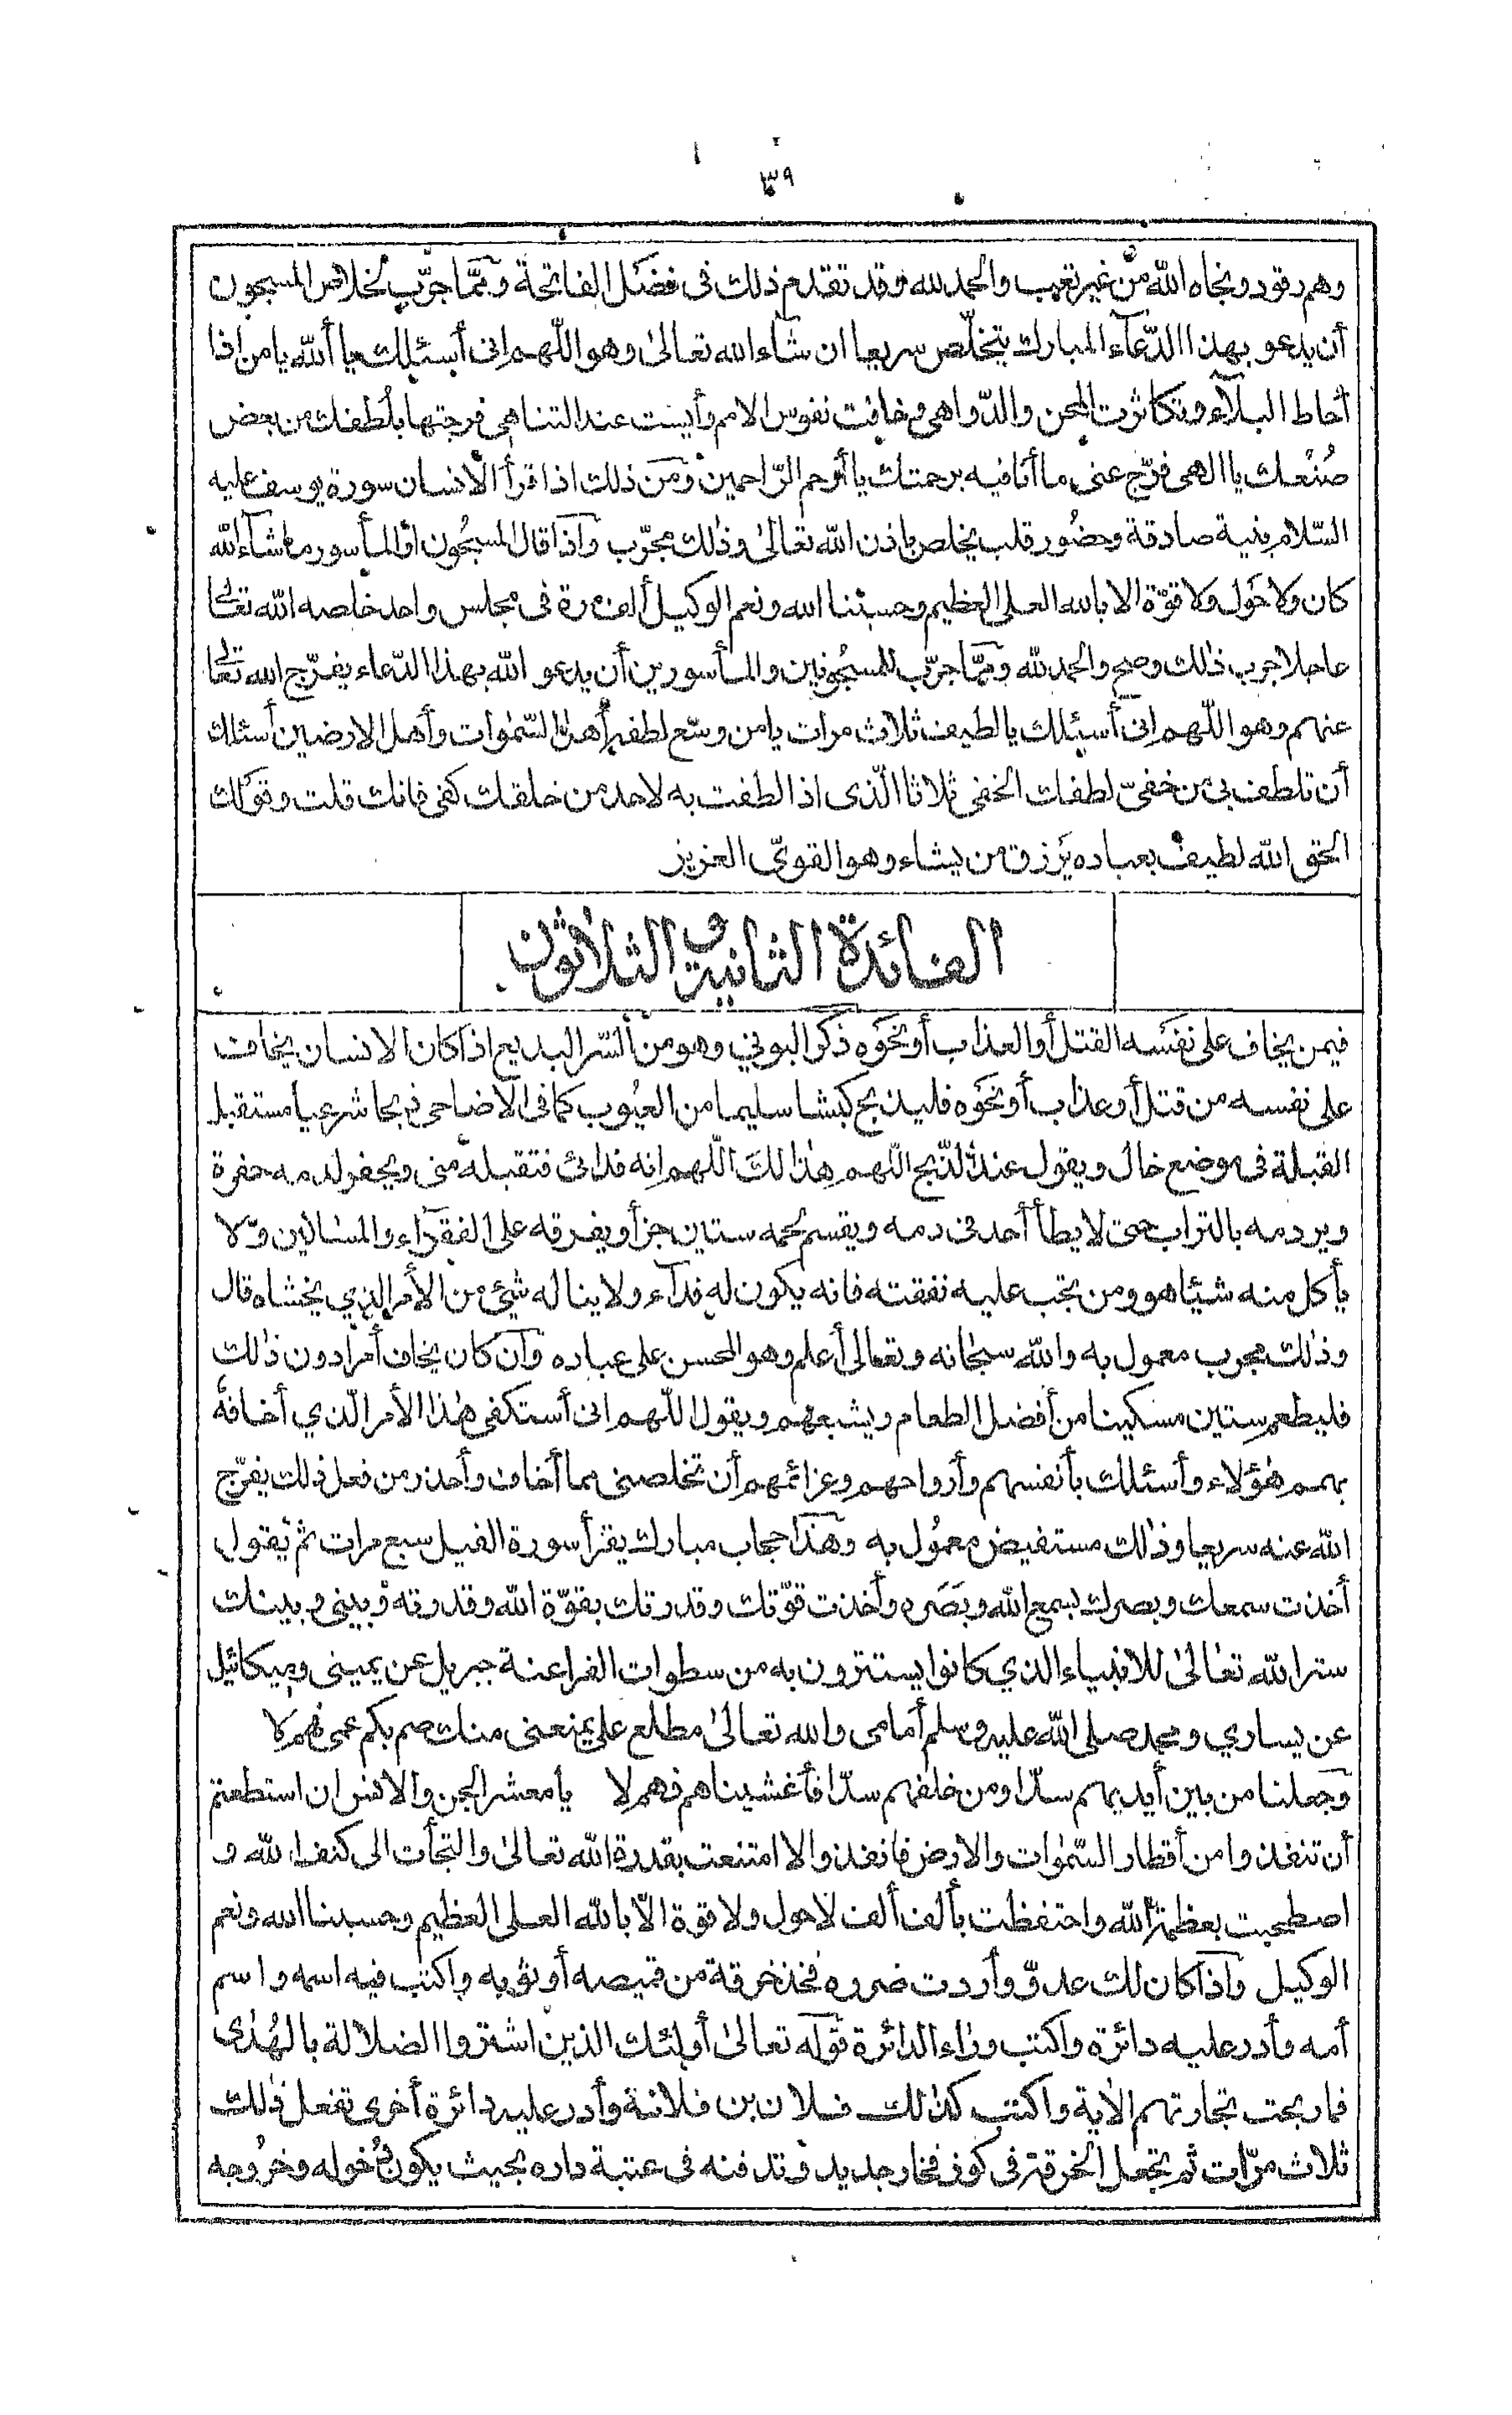 ٣٩
وهم رقود ونجاه الله من غير تعب والحمد لله وقد تقدم ذلك فى فضل الفاتحة ومما جرّب لخلاص المسجون
أن يدعو بهذا الدّعآء المبارك يتخلّص سريعا ان شاء الله تعالىٰ وهو اللّهم انى أسئلك يا ألله يا من اذا
أحاط البلآء وتكاثرت المحن والدّواهى وخافت نفوس الامم وأيست عند التناهى فرجتها بلُطفك من بعض
صُنعك يا الهى فرّج عنى ما أنا فيه برحمتك يا أرحم الرّاحمين ومن ذلك اذا قرأ الانسان سورة يوسف عليه
السّلام بنية صادقة وحضُور قلب يخلص باذن الله تعالىٰ وذٰلك مجرّب واذا قال المسجُون أو المأسور ما شآء الله
كان ولا حَول ولا قوّة الا بالله العلى العظيم وحسبُنا الله ونعم الوكيل ألف مرة فى مجلس واحد خلصه الله تعالى
عاجلا جرب ذٰلك وصح والحمد لله ومما جرّب للمسجُونين والمأسورين أن يدعو الله بهذا الدّعاء يفرّج الله تعالى
عنهم وهو اللّهم انى أسئلك يا لطيف ثلاث مرات يا من وسّع لطفه أهل السّمٰوات وأهل الارضين أسئلك
أن تلطف بى من خفىّ لطفك الخفى ثلاثا الّذى اذا لطفت به لاحد من خلقك كفى فانك قلت وقولك
الحق الله لطيف بعباده يَرزق من يشاء وهو القوىّ العزيز
الفائدة الثانية والثلاثون
فيمن يخاف على نفسه القتل أو العذاب أو نحوه ذكر البوني وهو من السّر البديع اذا كان الانسان يخاف
على نفسه من قتل أو عذاب أو نحوه فليذبح كبشا سليما من العيُوب كما فى الاضاحى ذبحا شرعيا مستقبل
القبلة فى موضع خال ويقول عند الذّبح اللّهم هٰذا لكَ اللّهم انه فدائى فتقبله منى ويحفر لدمه حفرة
ويردمه بالتراب حتى لا يطأ أحد فى دمه ويقسم لحمه ستين جزأ ويفرقه على الفقرآء والمسٰاكين ولا
يأكل منه شيئا هو ومن تجب عليه نفقته فانه يكون له فدآء ولا يناله شئ من الأمر الذي يخشاه قال
وذٰلك مجرب معمول به والله سبحانه وتعالى أعلم وهو المحسن على عباده وان كان يخاف أمرا دون ذٰلك
فليطعم ستين مسكينا من أفضل الطعام ويشبعهم ويقول اللّهم انى أستكفى هٰذا الأمر الّذي أخافهُ
بهمم هٰؤلاء وأسئلك بأنفسهم وأرواحهم وعزائمهم أن تخلصنى مما أخاف وأحذر من فعل ذلك يفرّج
الله عنه سريعا وذٰلك مستفيض معمُول به وهذا حجاب مبارك يقرأ سورة الفيل سبع مرات ثم يقول
أخذت سمعك وبصرك بسمع الله وبَصَره وأخذت قوّتك وقدرتك بقوّة الله وقدرته وبينى وبينك
ستر الله تعالىٰ للانبياء الذي كانوا يستترون به من سطوات الفراعنة جبريل عن يمينى وميكائيل
عن يساري ومحمد صلى الله عليه وسلم أمامى والله تعالىٰ مطلع على يمنعنى منك صم بكم عمى فهم لا
وجعلنا من بين أيديهم سدّا ومن خلفهم سدّا فأغشيناهم فهم لا يا معشر الجن والانس ان استطعتم
أن تنفذوا من أقطار السّمٰوات والارض فانفذوا لا امتنعت بقدرة الله تعالىٰ والتجأت الى كنف الله و
اصطحبت بعظمة الله واحتفظت بألف ألف لاحول ولا قوة الّا بالله العلى العظيم وحسبنا الله ونعم
الوكيل واذا كان لك عدوّ وأردت ضرره فخذ خرقة من قميصه أو ثوبه واكتب فيه اسمه واسم
أمه وأدر عليه دائرة واكتب وراء الدائرة قوله تعالىٰ أولئك الذين اشتروا الضلالة بالهُدٰى
فما ربحت تجارتهم الاٰية واكتب كذٰلك فلان بن فلانة وأدر عليه دائرة أخرى تفعل ذٰلك
ثلاث مرّات ثم تجعل الخرقة فى كوز فخار جديد وتدفنه فى عتبة داره بحيث يكون دُخوله وخرُوجه